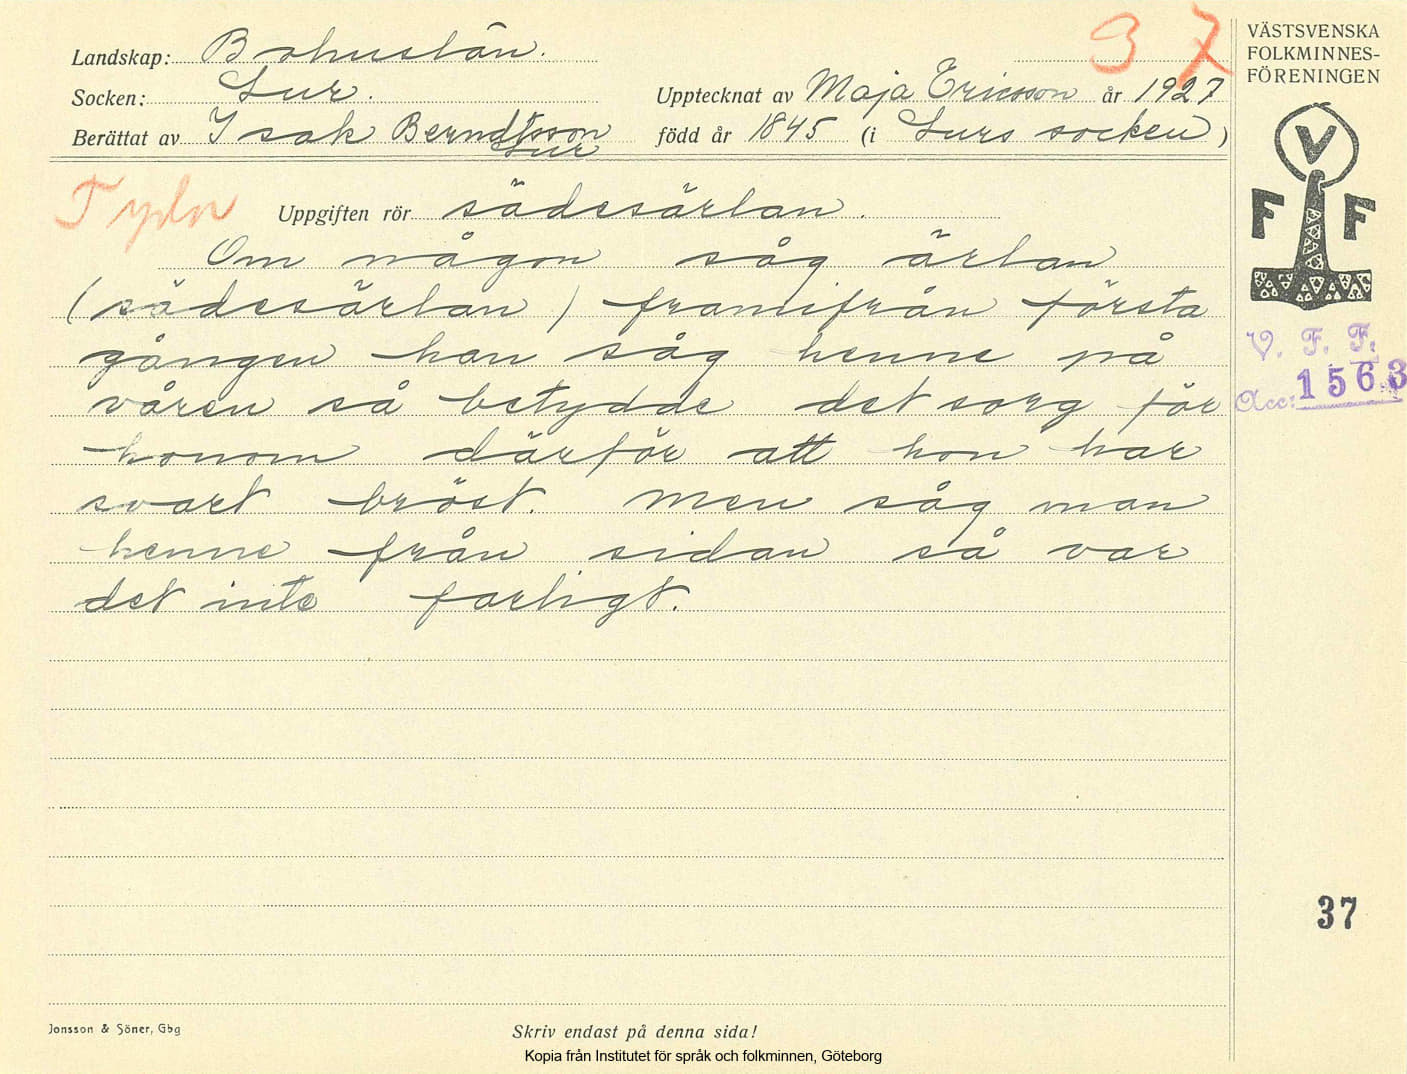 37
Landskap: Bohuslän.
Socken: Lur.
Upptecknat av Maja Ericsson år 1927
Berättat av Isak Berndtsson
Lur
född år 1845 (i Lurs socken)
VÄSTSVENSKA
FOLKMINNES-
FÖRENINGEN
V
F F
V. F. F.
Acc: 1563
Uppgiften rör sädesärlan.
Om någon såg ärlan
(sädesärlan) framifrån första
gången han såg henne på
våren så betydde det sorg för
honom därför att hon har
svart bröst. Men såg man
henne från sidan så var
det inte farligt.
37
Jonsson & Söner, Gbg
Skriv endast på denna sida!
Kopia från Institutet för språk och folkminnen, Göteborg